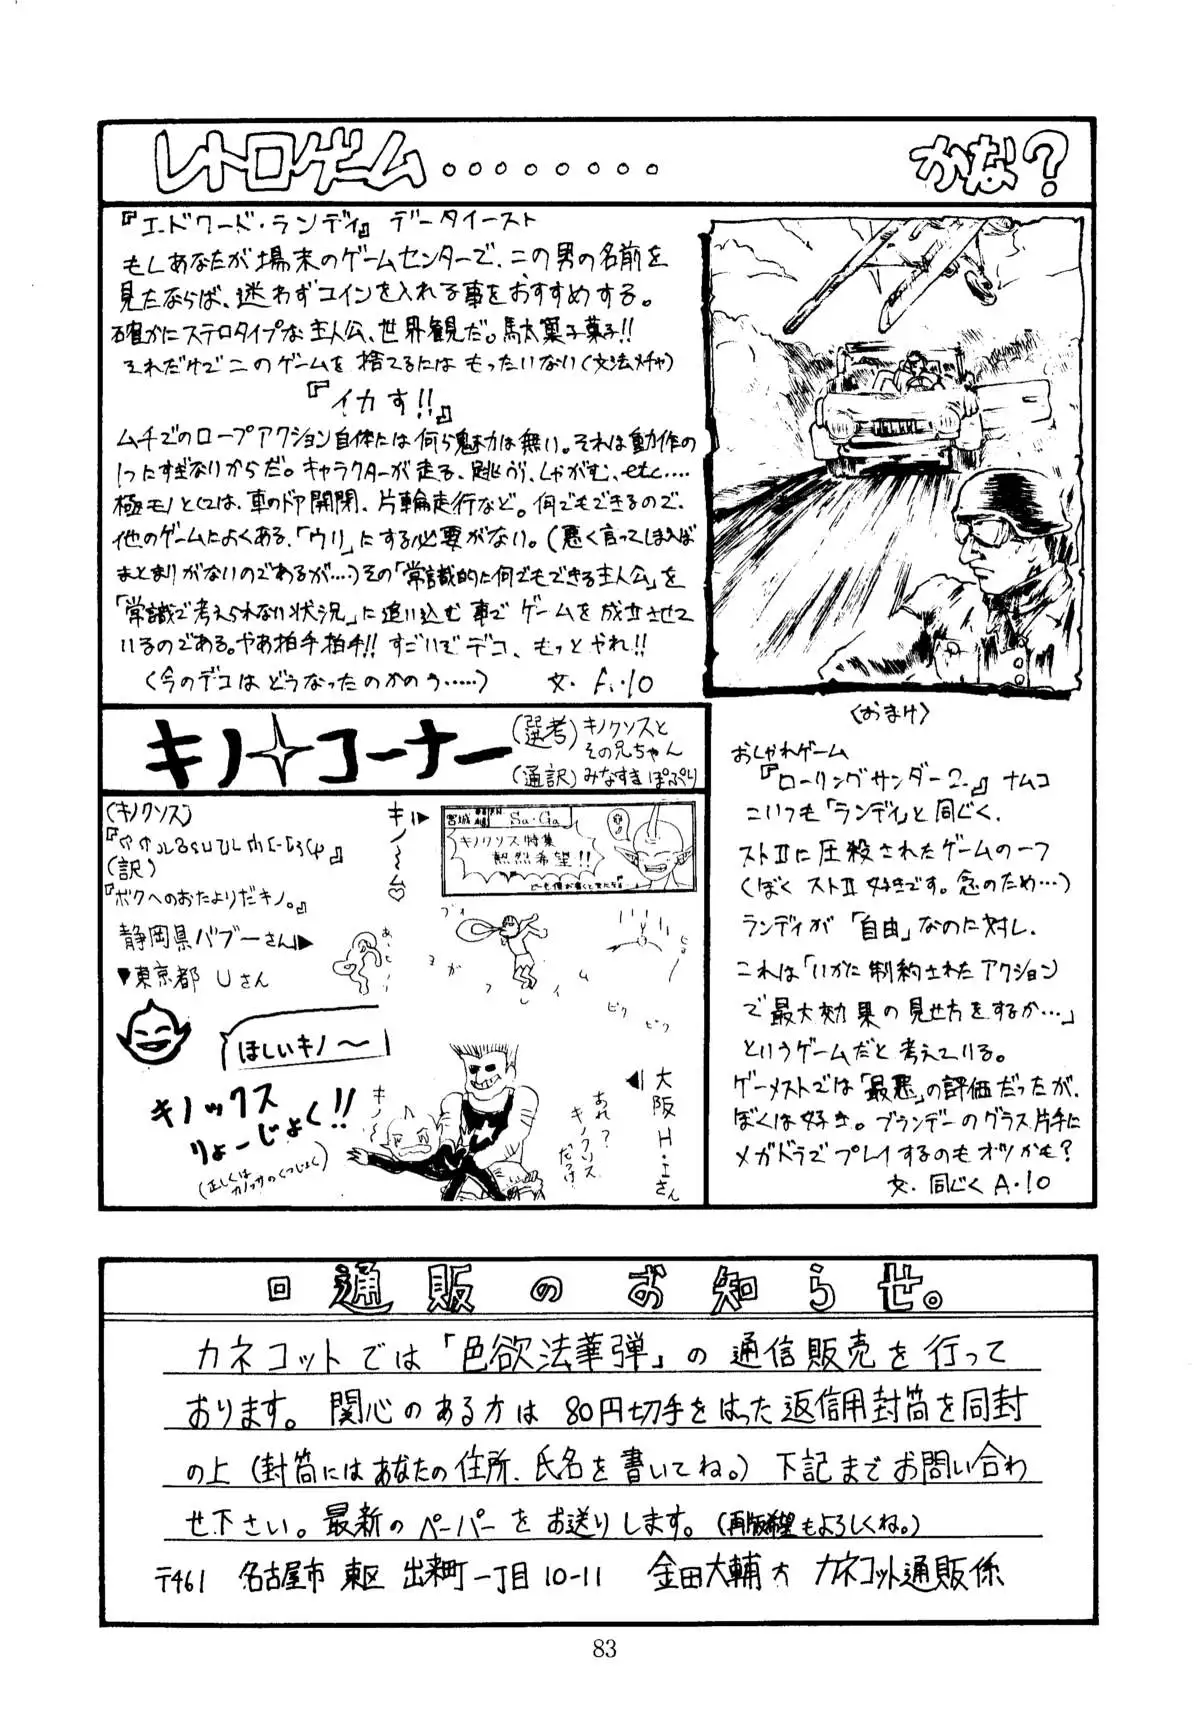 レトロゲーム........かな?
『エドワード・ランディ』 データイースト
もしあなたが場末のゲームセンターで、この男の名前を
見たならば、迷わずコインを入れる事をおすすめする。
確かにステロタイプな主人公、世界観だ。馬太菓子菓子!!
それだけでこのゲームを捨てるにはもったいない(文法メチャ)
『イカす!!』
ムチでのロープアクション自体には何ら魅力は無い。それは動作の
1つにすぎないからだ。キャラクターが走る、跳ぶ、しゃがむ、etc....
極モノとしては、車のドア開閉、片輪走行など。何でもできるので、
他のゲームによくある、「ウリ」にする必要がない。(悪く言ってしまえば
まとまりがないのであるが...)その「常識的に何でもできる主人公」を
「常識で考えられない状況」に追い込む事でゲームを成立させて
いるのである。やあ拍手拍手!! すごいでデコ、もっとやれ!!
(今のデコはどうなったのかのう......) 文・A・10
〈おまけ〉
おしゃれゲーム
『ローリングサンダー2』 ナムコ
こいつも「ランディ」と同じく、
ストⅡに圧殺されたゲームの一つ
(ぼくストⅡ好きです。念のため...)
ランディが「自由」なのに対し、
これは「いかに制約されたアクション
で最大効果の見せ方をするか...」
というゲームだと考えている。
ゲーメストでは「最悪」の評価だったが、
ぼくは好き。ブランデーのグラス片手に
メガドラでプレイするのもオツかも?
文・同じく A・10
キノ コーナー
(選考) キノクソスと
その兄ちゃん
(通訳) みなすき ぽぷり
(キノクソス)
(訳)
『ボクへのおたよりだキノ。』
静岡県バブーさん▶
▼東京都 Uさん
キノ〜〜ム♡
宮城 Sa・Ga
キノクソス特集
熱烈希望!!
ほしいキノ〜
キノックス
りょーじょく!!
キノ〜
ピク ピク
あれ?
キノクソス
だっけ
◀大阪H・Iさん
回 通販のお知らせ。
カネコットでは「色欲法華弾」の通信販売を行って
おります。関心のある方は80円切手をはった返信用封筒を同封
の上(封筒にはあなたの住所、氏名を書いてね。)下記までお問い合わ
せ下さい。最新のペーパーをお送りします。(再版希望もよろしくね。)
〒461 名古屋市 東区 出来町一丁目10-11 金田大輔方 カネコット通販係
83